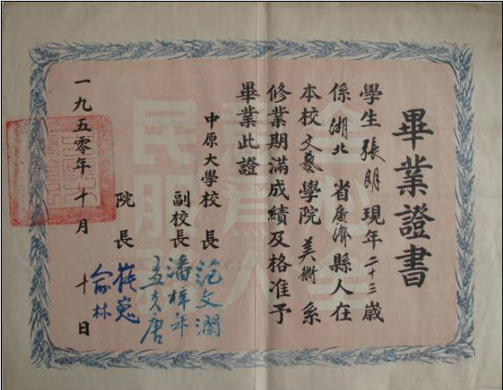 畢業證書
學生張明現年二十三歲
係湖北省廣濟縣人在
本校文藝學院美術系
修業期滿成績及格准予
畢業此證
中原大學校長范文瀾
副校長潘梓年
孟夫唐
院長崔嵬
俞林
一九五零年十月十日
全心全意為人民服務